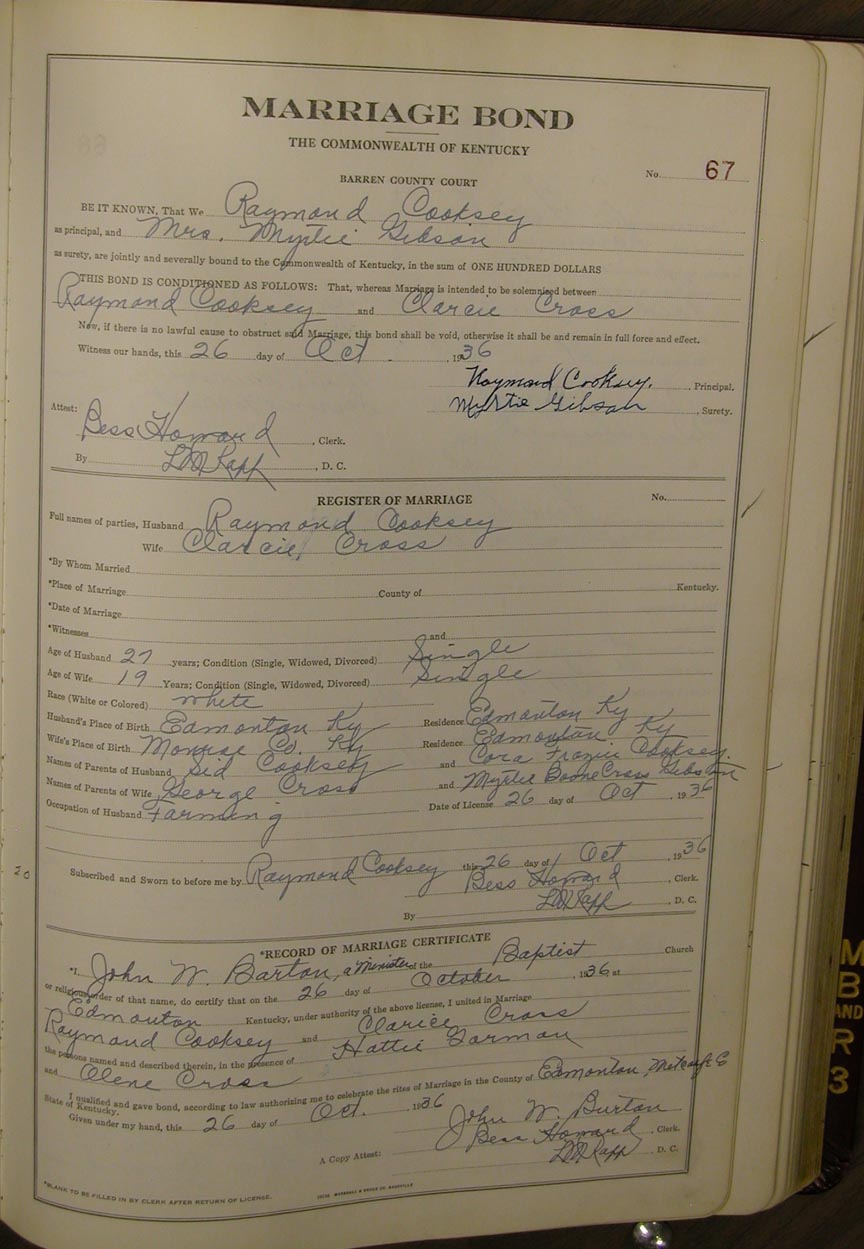 MARRIAGE BOND
THE COMMONWEALTH OF KENTUCKY
No. 67
BARREN COUNTY COURT
BE IT KNOWN, That We Raymond Cooksey
as principal, and Mrs. Myrtie Gibson
as surety, are jointly and severally bound to the Commonwealth of Kentucky, in the sum of ONE HUNDRED DOLLARS
THIS BOND IS CONDITIONED AS FOLLOWS: That, whereas Marriage is intended to be solemnized between
Raymond Cooksey and Clarcie Cross
Now, if there is no lawful cause to obstruct said Marriage, this bond shall be void, otherwise it shall be and remain in full force and effect.
Witness our hands, this 26 day of Oct. , 1936
Raymond Cooksey. , Principal.
Myrtie Gibson , Surety.
Attest:
Bess Howard , Clerk.
By , D. C.
REGISTER OF MARRIAGE No.
Full names of parties, Husband Raymond Cooksey
Wife Clarcie Cross
*By Whom Married
*Place of Marriage County of Kentucky.
*Date of Marriage
*Witnesses and
Age of Husband 27 years; Condition (Single, Widowed, Divorced) Single
Age of Wife 19 Years; Condition (Single, Widowed, Divorced) Single
Race (White or Colored) white
Husband's Place of Birth Edmonton Ky Residence Edmonton Ky
Wife's Place of Birth Monroe Co. Ky Residence Edmonton Ky
Names of Parents of Husband Sid Cooksey and Cora Frazier Cooksey.
Names of Parents of Wife George Cross and Myrtie Boone Cross Gibson
Occupation of Husband Farming Date of License 26 day of Oct 1936
Subscribed and Sworn to before me by Raymond Cooksey this 26 day of Oct , 1936
Bess Howard , Clerk.
By , D. C.
*RECORD OF MARRIAGE CERTIFICATE
*I, John W. Barton, a Minister of the Baptist Church
or religious order of that name, do certify that on the 26 day of October , 1936 at
Edmonton Kentucky, under authority of the above license, I united in Marriage
Raymond Cooksey and Clarice Cross
the persons named and described therein, in the presence of Hattie Garman
and Olene Cross
I qualified and gave bond, according to law authorizing me to celebrate the rites of Marriage in the County of Edmonton, Metcalfe Co
State of Kentucky.
Given under my hand, this 26 day of Oct. , 1936
John W. Burton
A Copy Attest: Bess Howard , Clerk.
D. C.
*BLANK TO BE FILLED IN BY CLERK AFTER RETURN OF LICENSE.
M
B
AND
R
3